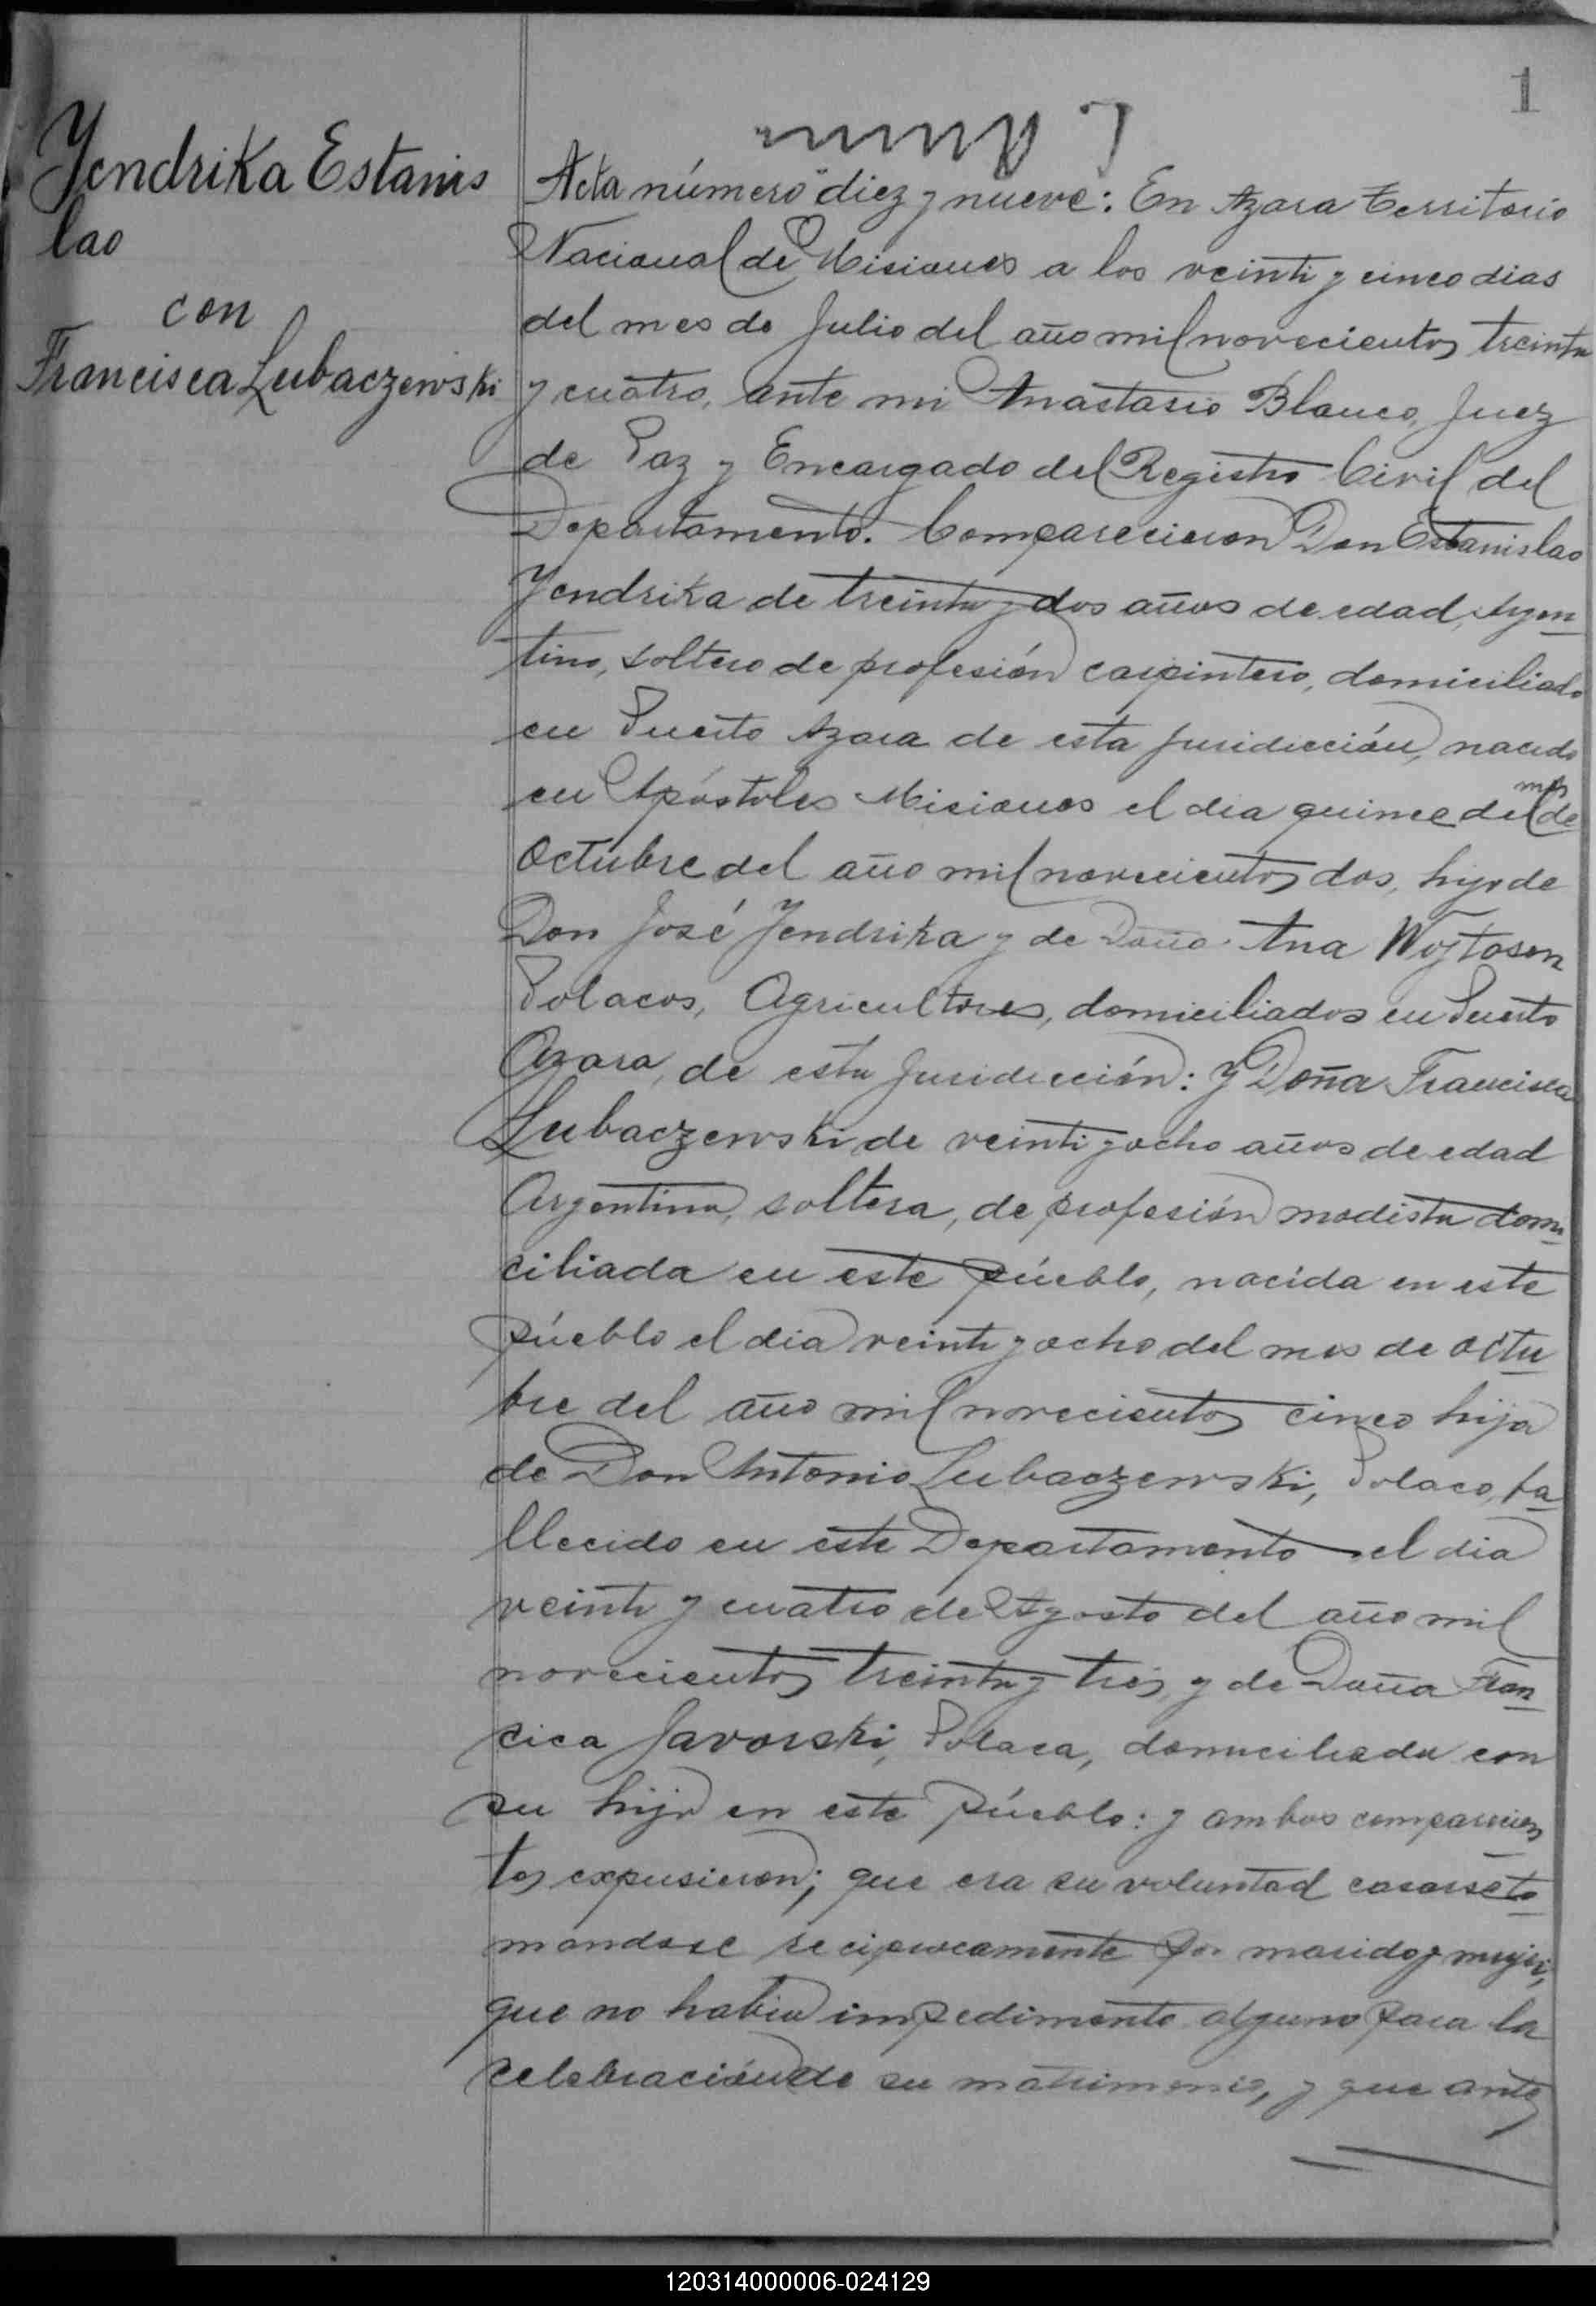 1
Yendrika Estanis
lao
con
Francisca Lubaczewski
Acta número diez y nueve: En Azara Territorio
Nacional de Misiones a los veinti y cinco dias
del mes de Julio del año mil novecientos treinta
y cuatro, ante mi Anastasio Blanco, Juez
de Paz y Encargado del Registro Civil del
Departamento. Comparecieron Don Estanislao
Yendrika de treinta y dos años de edad, Argen
tino, soltero de profesión carpintero, domiciliado
en Puerto Azara de esta jurisdicción, nacido
en Apóstoles Misiones el dia quince del mes de
Octubre del año mil novecientos dos, hijo de
Don José Yendrika y de Doña Ana Wojtosen
Polacos, Agricultores, domiciliados en Puerto
Azara, de esta Jurisdicción: y Doña Francisca
Lubaczewski de veinti y ocho años de edad
Argentina, soltera, de profesión modista domi
ciliada en este púeblo, nacida en este
púeblo el dia veinti y ocho del mes de octu
bre del año mil novecientos cinco hija
de Don Antonio Lubaczewski, Polaco, fa
llecido en este Departamento el dia
veinti y cuatro de Agosto del año mil
novecientos treinta y tres, y de Doña Fran
cica Javorski, Polaca, domiciliada con
su hija en este Púeblo: y ambos comparecien
tes expusieron; que era su voluntad casarse to
mandose reciprocamente por marido y mujer,
que no habia impedimento alguno para la
celebración de su matrimonio, y que antes
120314000006-024129